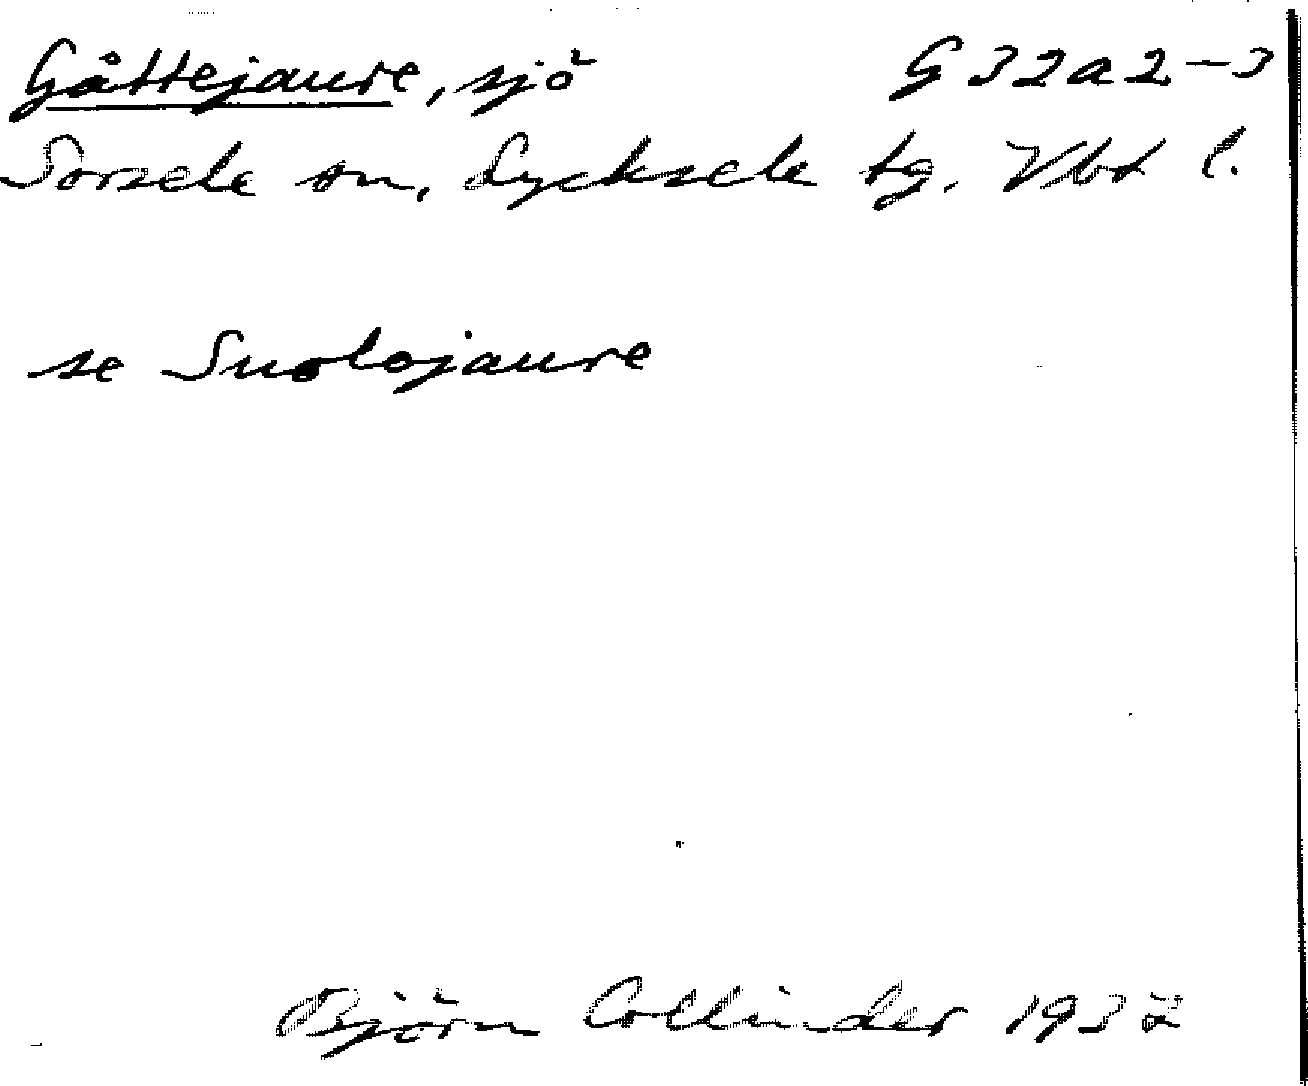 Gåttejaure, sjö G 32 a 2-3
Sorsele sn, Lycksele tg. Vbt l.
se Suolojaure
Björn Collinder 1937